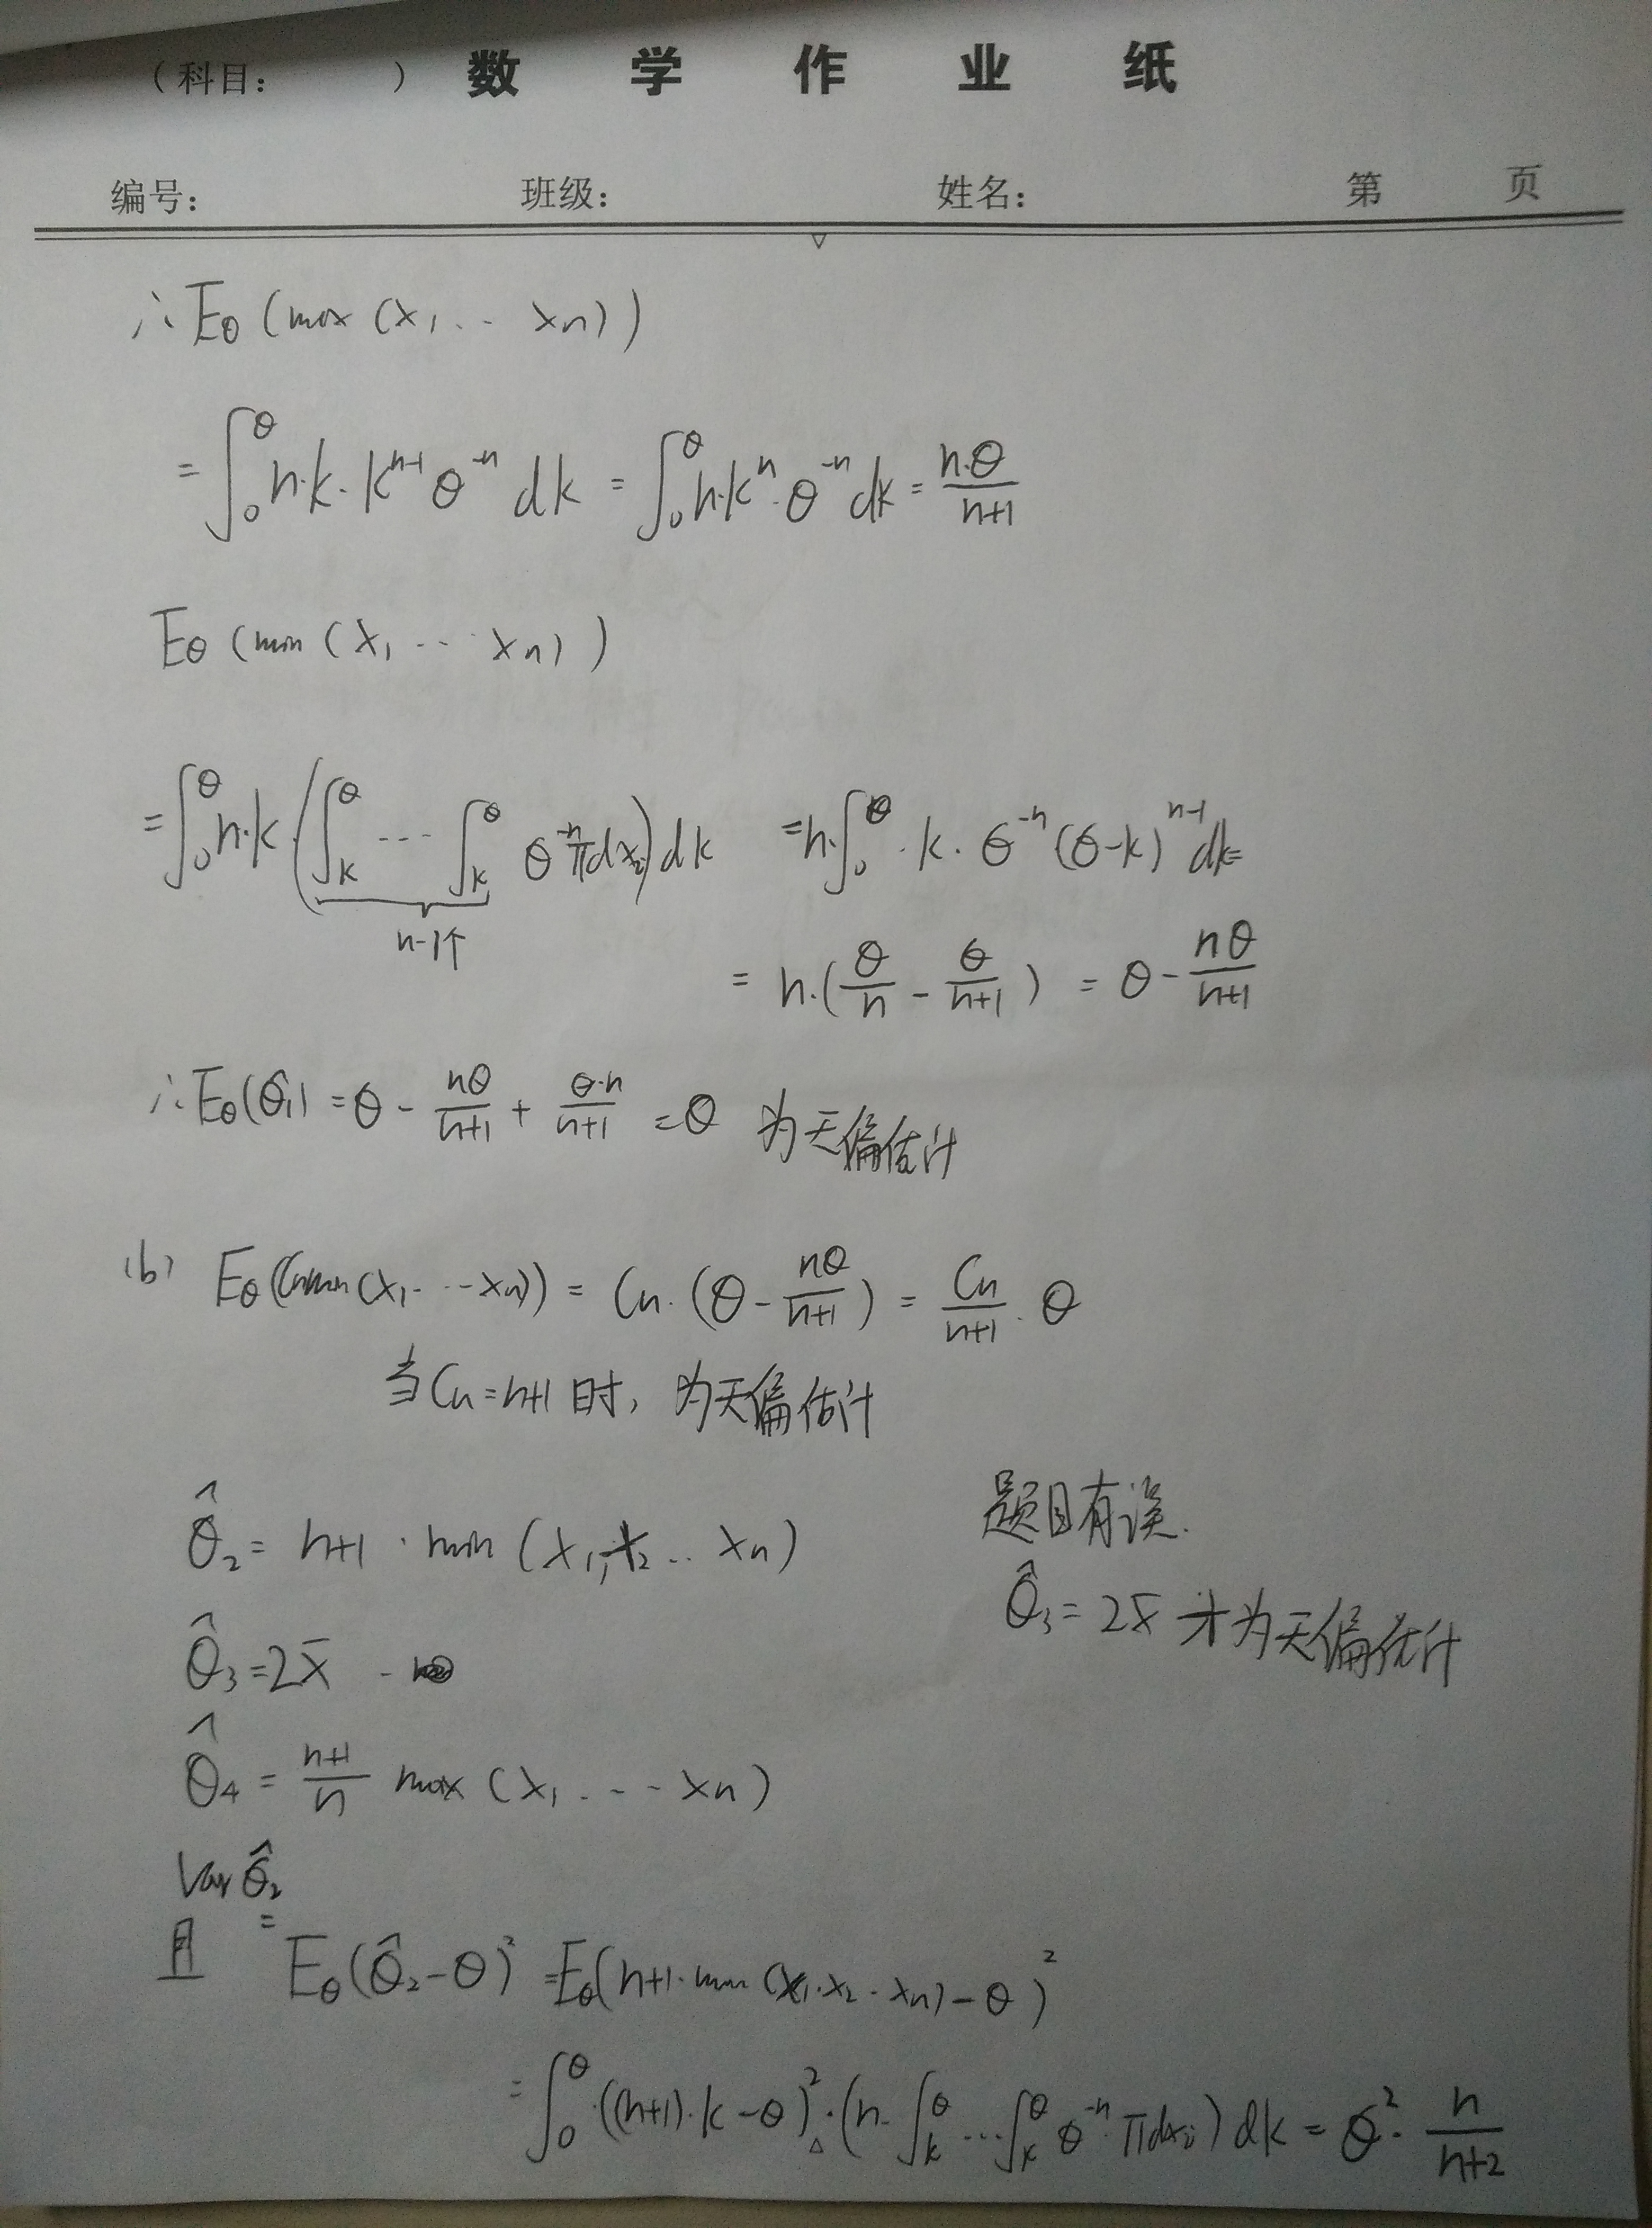 （科目： ） 数 学 作 业 纸
编号： 班级： 姓名： 第 页
∴ Eθ (max (x₁ ... xₙ))
= ∫₀^θ n·k·k^{n-1} θ^{-n} dk = ∫₀^θ n·kⁿ·θ^{-n} dk = \frac{n·θ}{n+1}
Eθ (min (x₁ ... xₙ))
= ∫₀^θ n·k·(∫_k^θ ... ∫_k^θ θ^{-n} π dx_i) dk = n·∫₀^θ ·k·θ^{-n} (θ-k)^{n-1} dk =
n-1个
= n·(\frac{θ}{n} - \frac{θ}{n+1}) = θ - \frac{nθ}{n+1}
∴ Eθ(θ̂₁) = θ - \frac{nθ}{n+1} + \frac{θ·n}{n+1} = θ 为无偏估计
(b) Eθ(Cₙmin(x₁...xₙ)) = Cₙ·(θ - \frac{nθ}{n+1}) = \frac{Cₙ}{n+1}·θ
当Cₙ=n+1时，为无偏估计
θ̂₂ = n+1 · min (x₁,x₂...xₙ)
题目有误.
θ̂₃ = 2x̄ 才为无偏估计
θ̂₃ = 2x̄
θ̂₄ = \frac{n+1}{n} max (x₁...xₙ)
Var θ̂₂
且 = Eθ(θ̂₂-θ)² = Eθ(n+1·min(x₁·x₂·xₙ)-θ)²
= ∫₀^θ ((n+1)·k-θ)²·(n·∫_k^θ...∫_k^θ θ^{-n}·π dx_i) dk = θ²·\frac{n}{n+2}